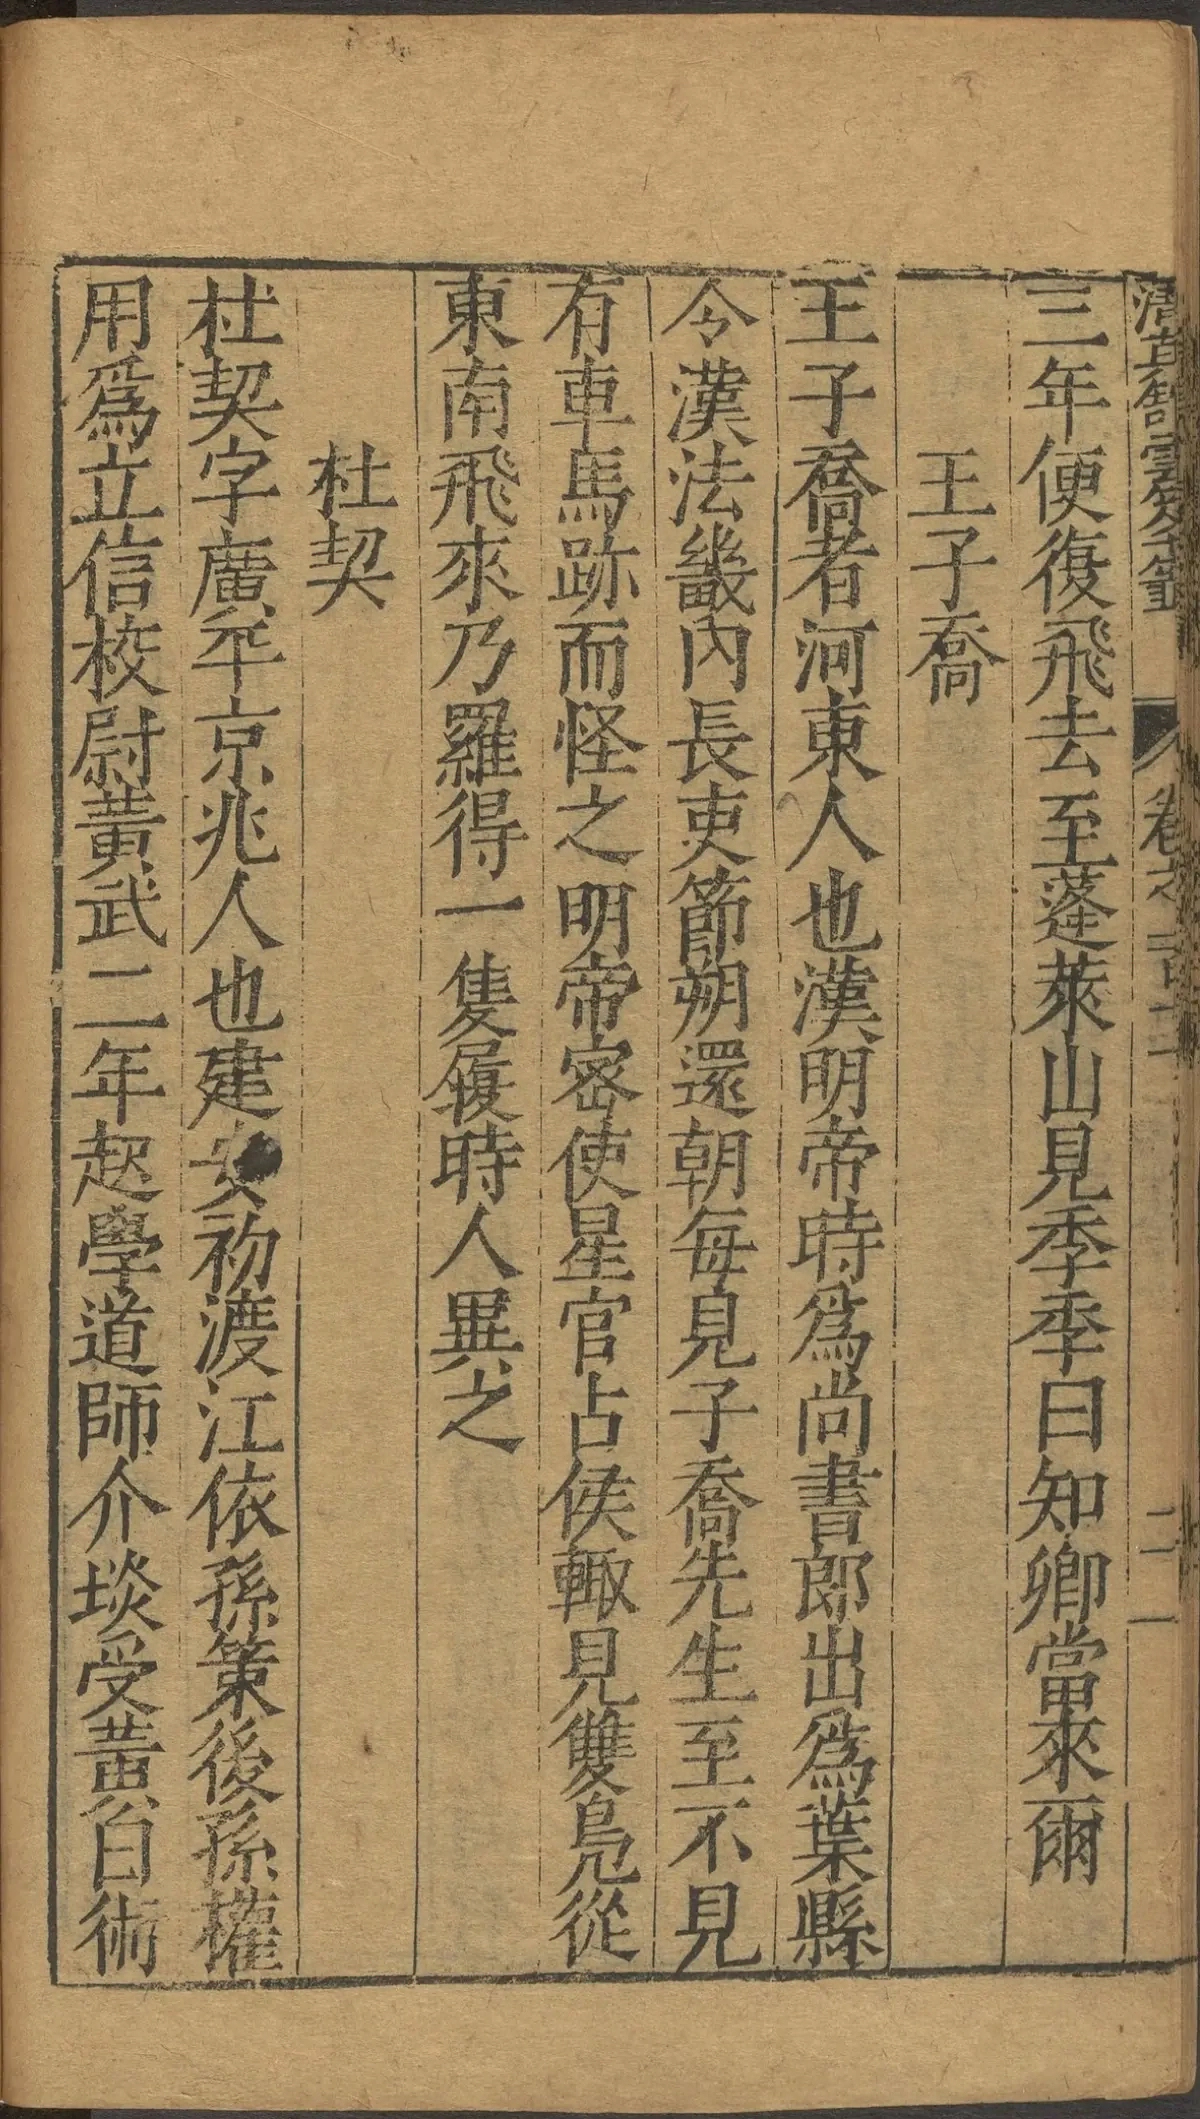 清真館雲笈七籤 卷之一百十 二一
三年便復飛去至蓬萊山見季季曰知卿當來爾
王子喬
王子喬者河東人也漢明帝時爲尚書郎出爲葉縣
令漢法畿內長吏節朔還朝每見子喬先生至不見
有車馬跡而怪之明帝密使星官占侯輙見雙鳬從
東南飛來乃羅得一隻履時人異之
杜契
杜契字廣平京兆人也建安初渡江依孫策後孫權
用爲立信校尉黃武二年起學道師介琰受黃白術